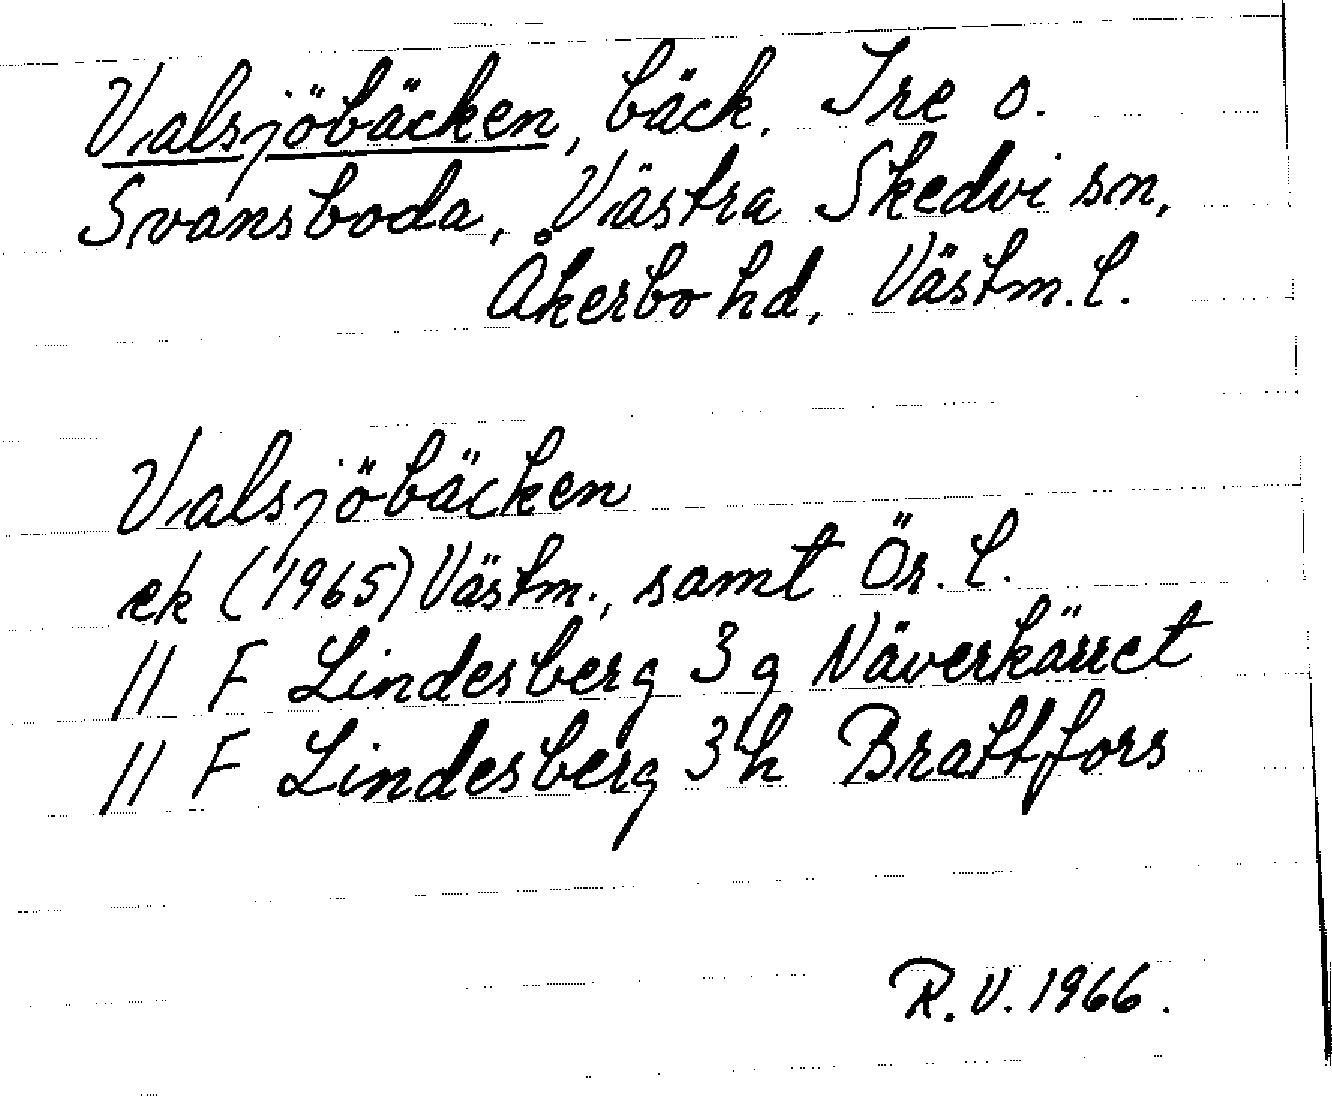 Valsjöbäcken, bäck. Tre o.
Svansboda, Västra Skedvi sn,
Åkerbo hd, Västm. l.
Valsjöbäcken
ek (1965) Västm., samt Ör. l.
11 F Lindesberg 3 g Näverkärret
11 F Lindesberg 3 h Brattfors
R. V. 1966.